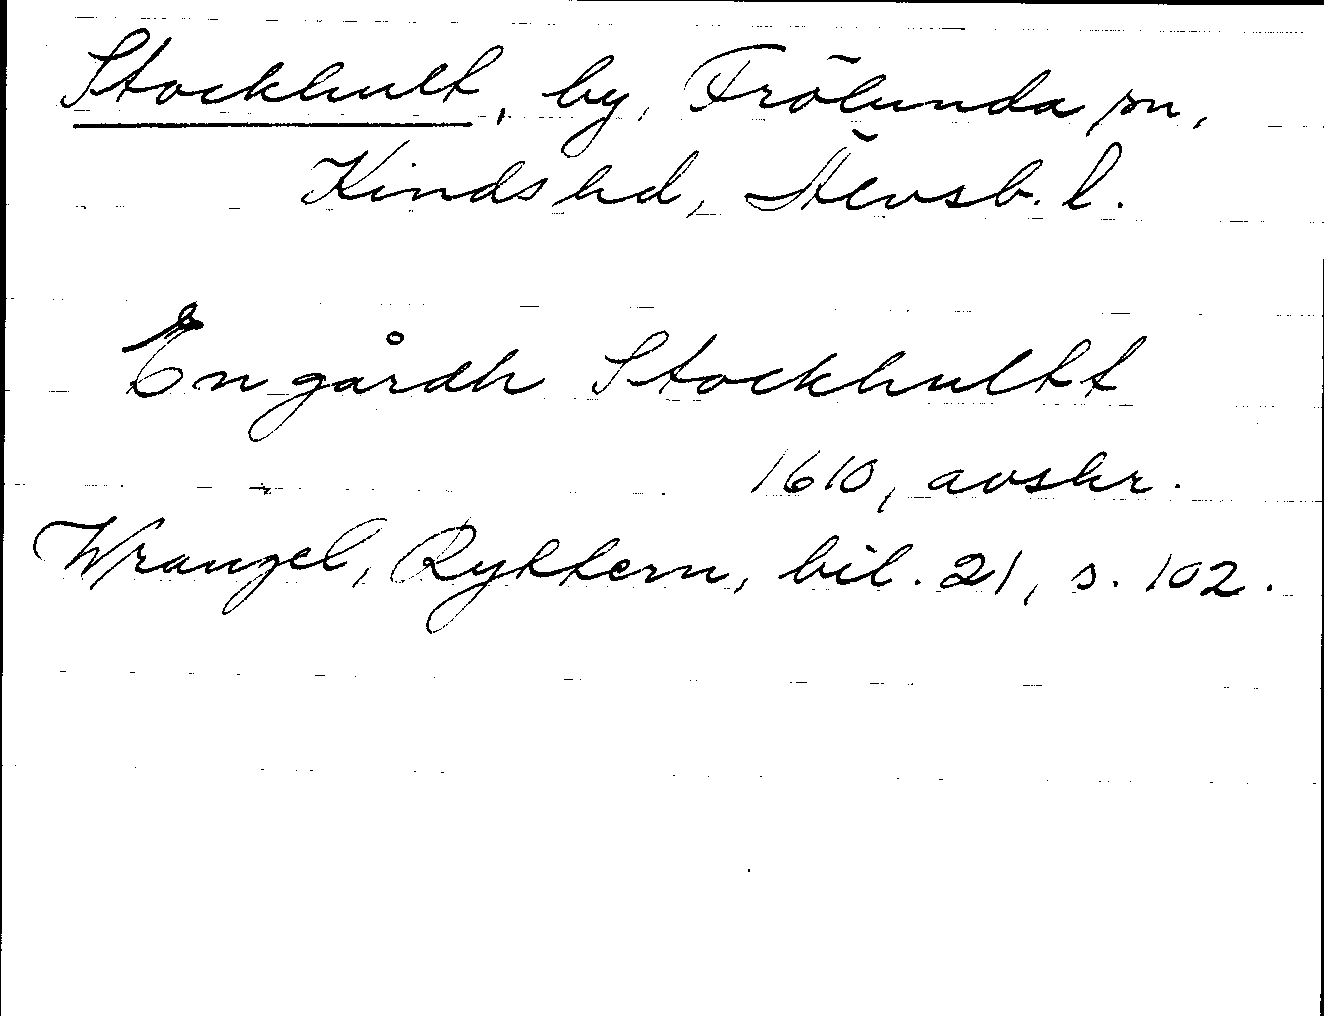 Stockhult, by, Frölunda sn,
Kinds hd, Älvsb. l.
En gårdh Stockhultt
1610, avskr.
Wrangel, Ryktern, bil. 21, s. 102.